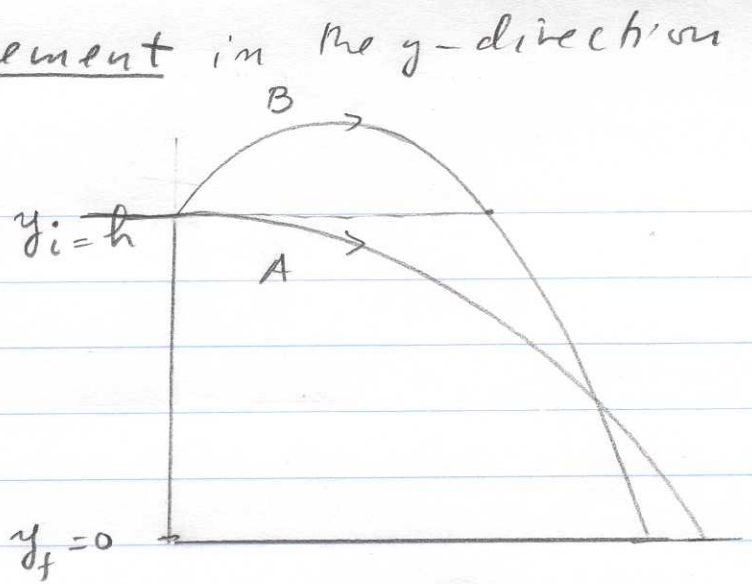 ement in the y-direction
B
yᵢ = h
A
y_f = 0